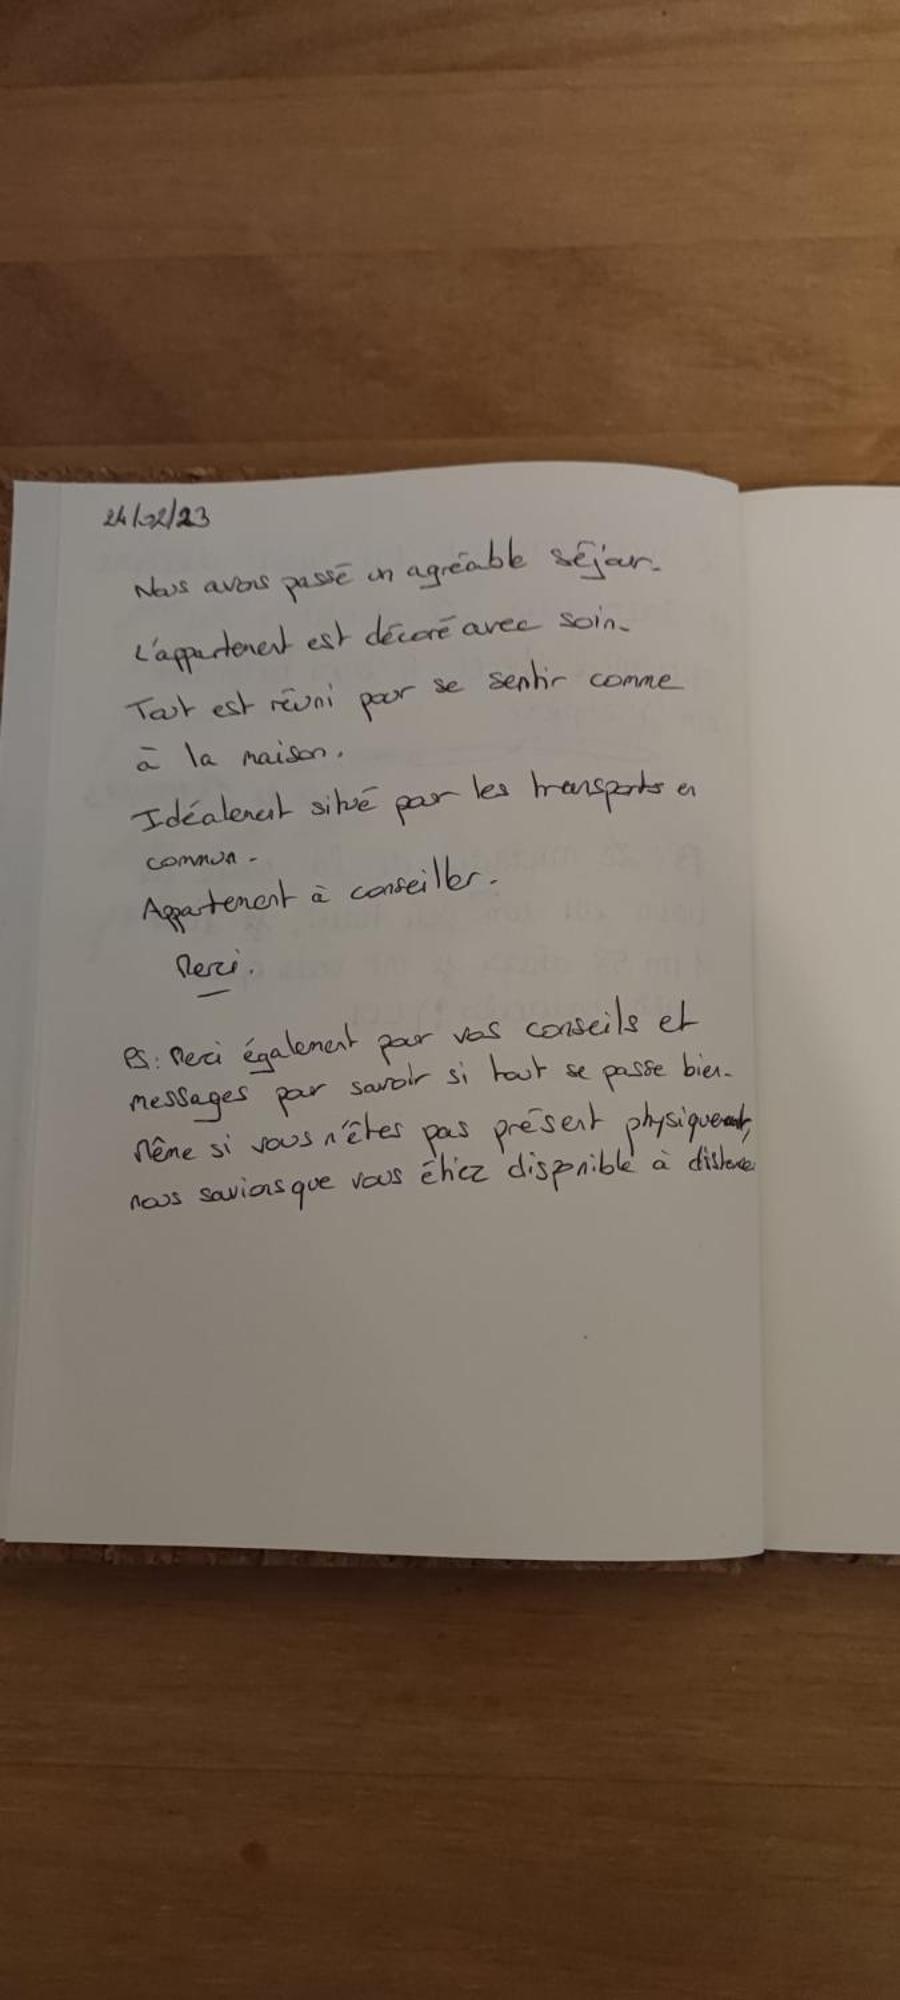 24/02/23
Nous avons passé un agréable séjour.
L'appartement est décoré avec soin.
Tout est réuni pour se sentir comme
à la maison.
Idéalement situé par les transports en
commun.
Appartement à conseiller.
Merci.
PS: Merci également pour vos conseils et
messages pour savoir si tout se passe bien.
Même si vous n'êtes pas présent physiquement,
nous savions que vous étiez disponible à distance